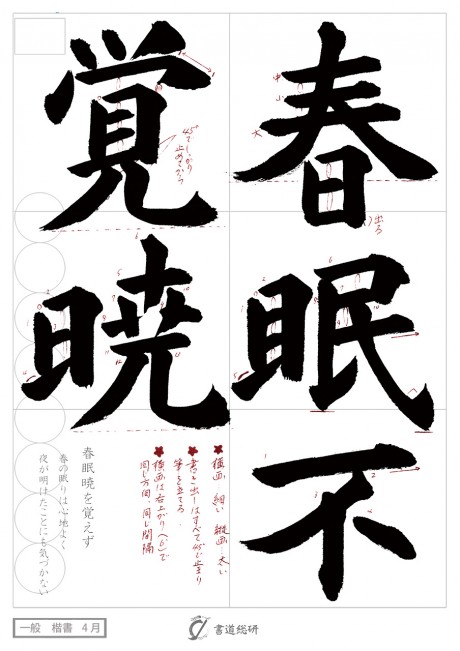 春眠不
覚暁
中
小
大
出る
45°でしっかり
止めてから
横画 細い 縦画…太い
書き出しはすべて45°止まり
筆を立てる。
横画は右上がり(6°)で
同じ方向、同じ間隔
春眠暁を覚えず
春の眠りは心地よく
夜が明けたことにも気づかない
一般 楷書 4月
書道総研